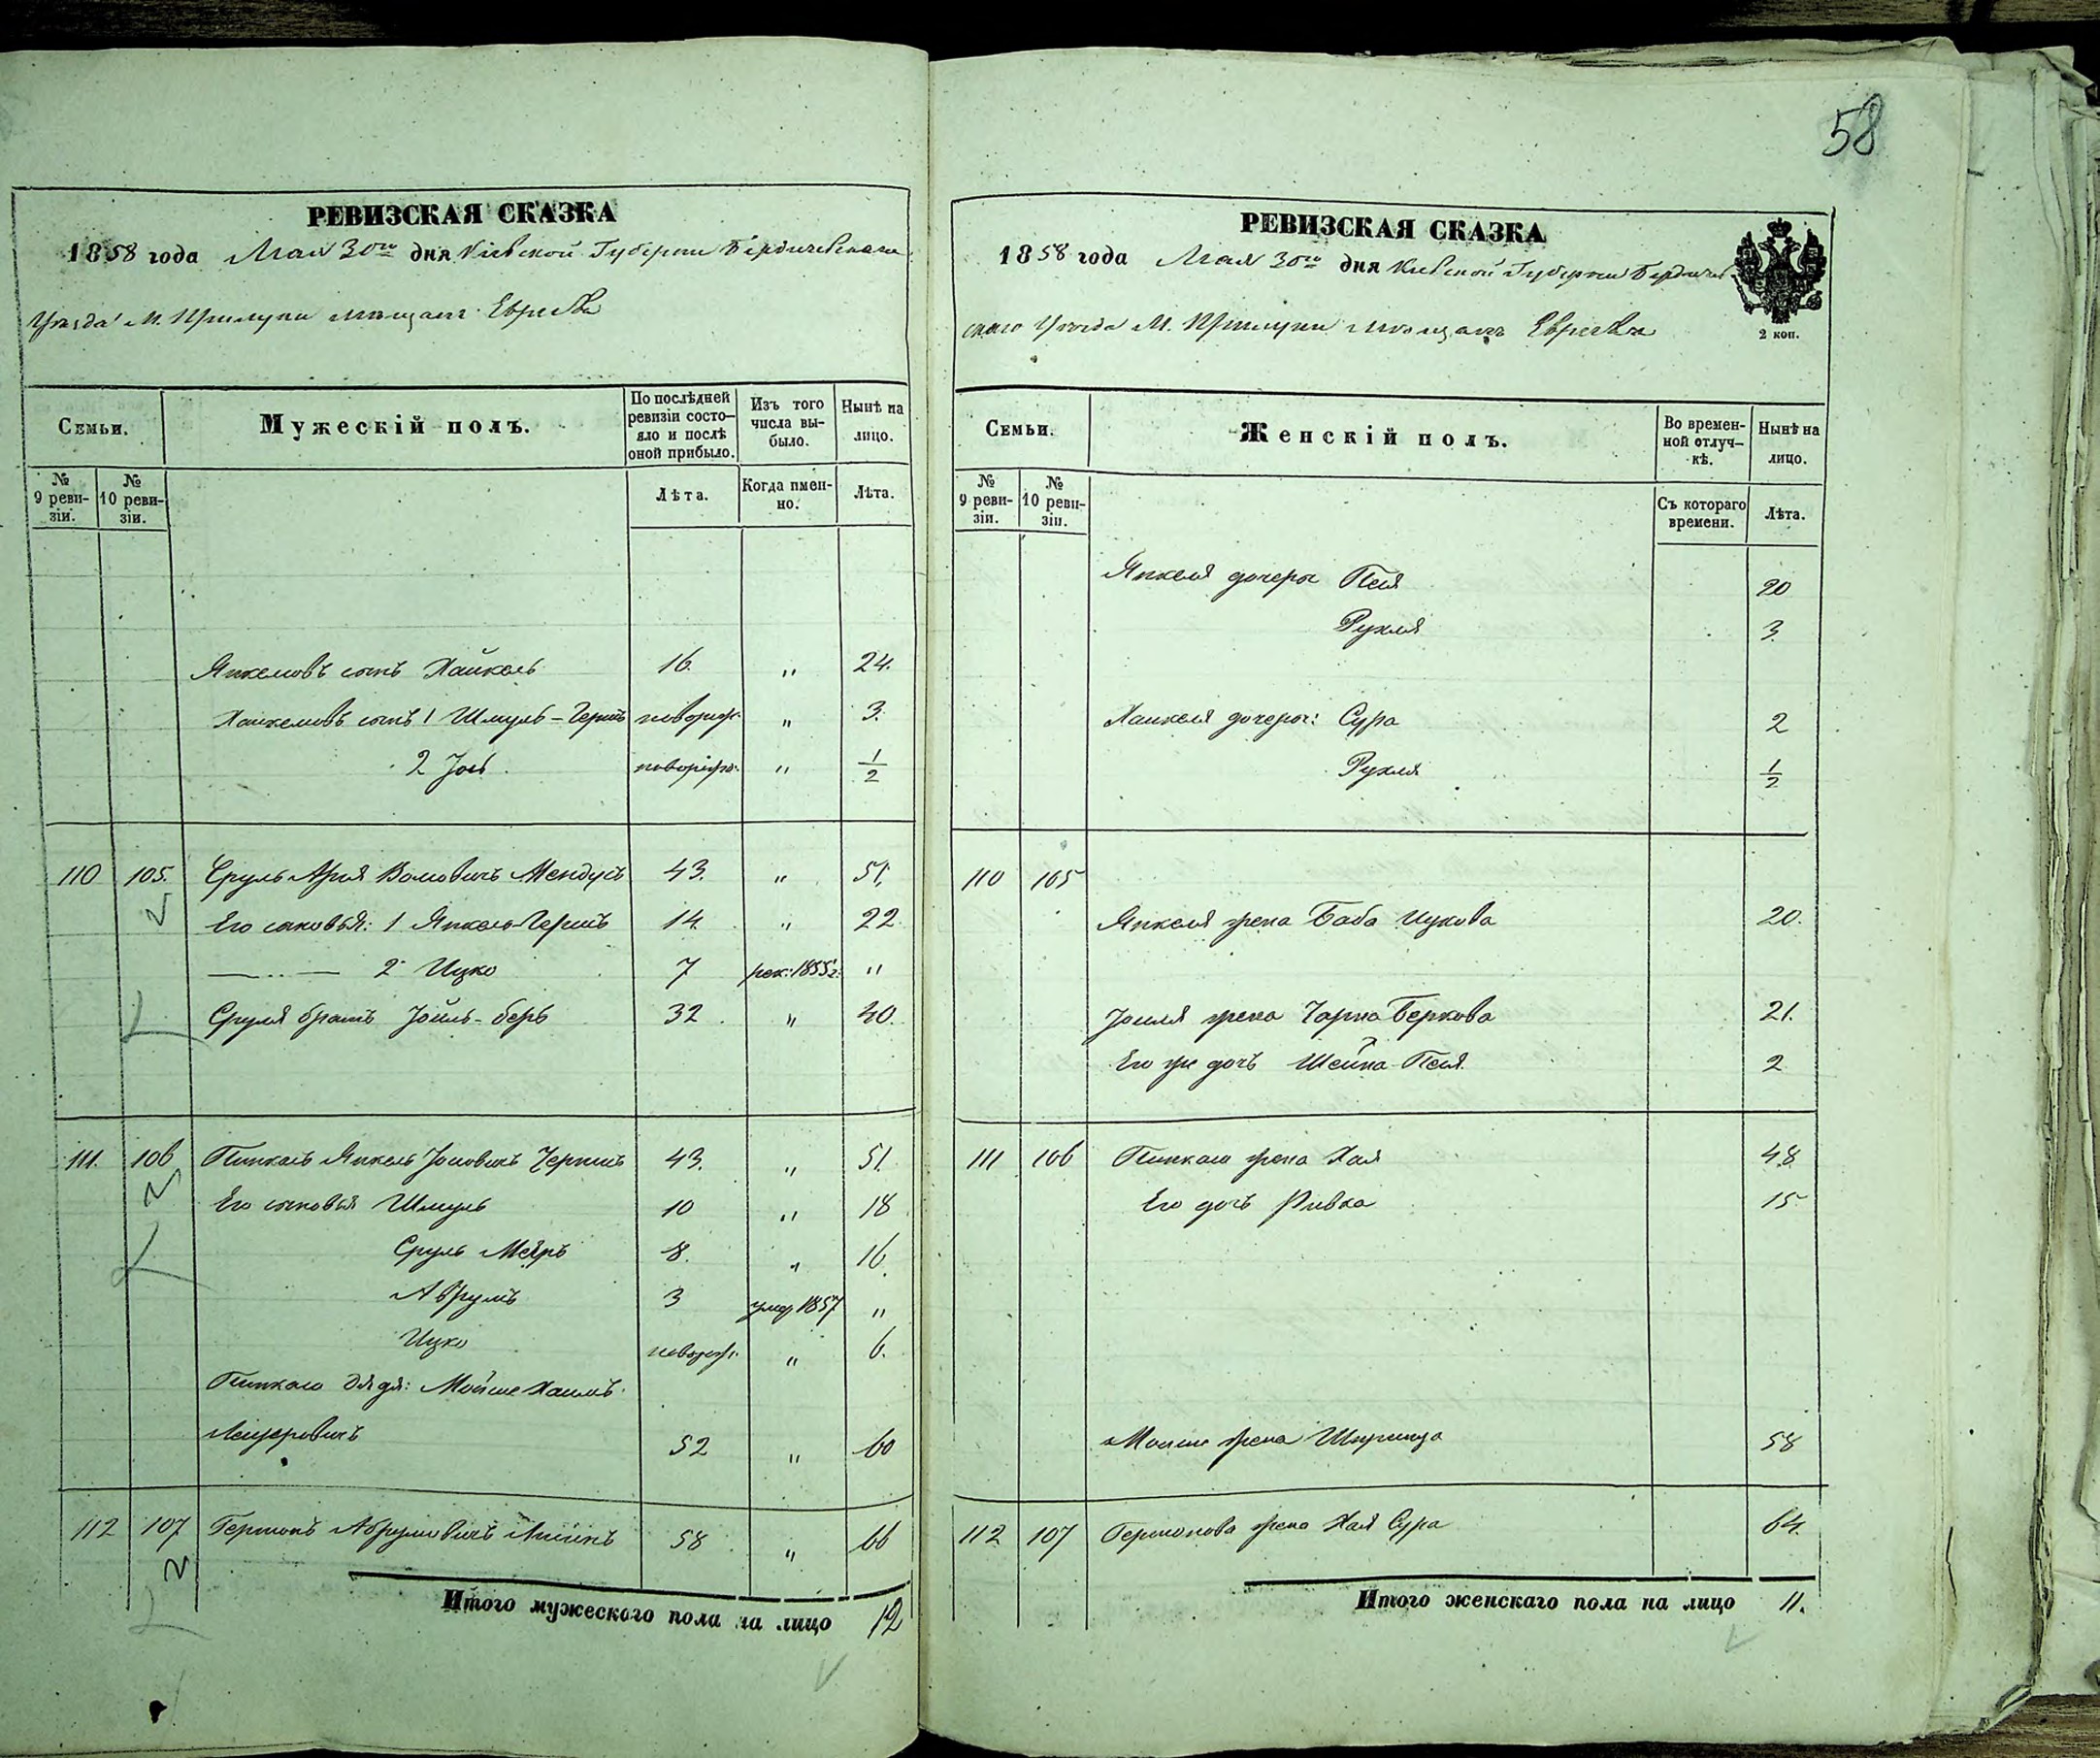 58
РЕВИЗСКАЯ СКАЗКА
1858 года Мая 30го дня Кіевской Губерніи Бердичевскаго
Уѣзда М. Прилуки мѣщанъ Евреевъ
Семьи.
Мужескій полъ.
По послѣдней ревизіи состояло и послѣ оной прибыло.
Изъ того числа выбыло.
Нынѣ на лицо.
№ 9 ревизіи.
№ 10 ревизіи.
Лѣта.
Когда именно.
Лѣта.
Янкелевъ сынъ Хайкель 16. " 24.
Хайкелевъ сынъ 1 Шмуль-Гершъ новорож. " 3.
2 Іось новорож. " 1/2
110 105. Сруль Арья Волковичъ 43. " 51.
Его сыновья: 1 Янкель-Гершъ 14. " 22.
—..— 2 Ицко 7 рек: 1855г. "
Сруля братъ Іойль-беръ 32. " 40.
111. 106 Пинкасъ Янкель 43. " 51.
Его сыновья Шмуль 10 " 18
Сруль Меѣръ 8. " 16.
Аврумъ 3 умер 1857 "
Ицко новорож. " 6.
Пинкаса дядя: Мойше Хаимъ
Лейзеровичъ 52 " 60
112 107 Аврумовичъ 58 " 66
Итого мужескаго пола на лицо 12
РЕВИЗСКАЯ СКАЗКА
1858 года Мая 30го дня Кіевской Губерніи Бердичев-
скаго Уѣзда М. Прилуки мѣщанъ Евреевъ
2 коп.
Семьи.
Женскій полъ.
Во временной отлучкѣ.
Нынѣ на лицо.
№ 9 ревизіи.
№ 10 ревизіи.
Съ котораго времени.
Лѣта.
Янкеля дочери Песя 20
Рухля 3.
Хайкеля дочери: Сура 2
Рухля 1/2
110 105
Янкеля жена Баба Ицкова 20.
Іойля жена Чарна Беркова 21.
Его же дочь Шейна-Песя 2
111 106 Пинкаса жена Хая 48
Его дочь Ривка 15
Мойше жена Шпринца 58
112 107 жена Хая Сура 64.
Итого женскаго пола на лицо 11.